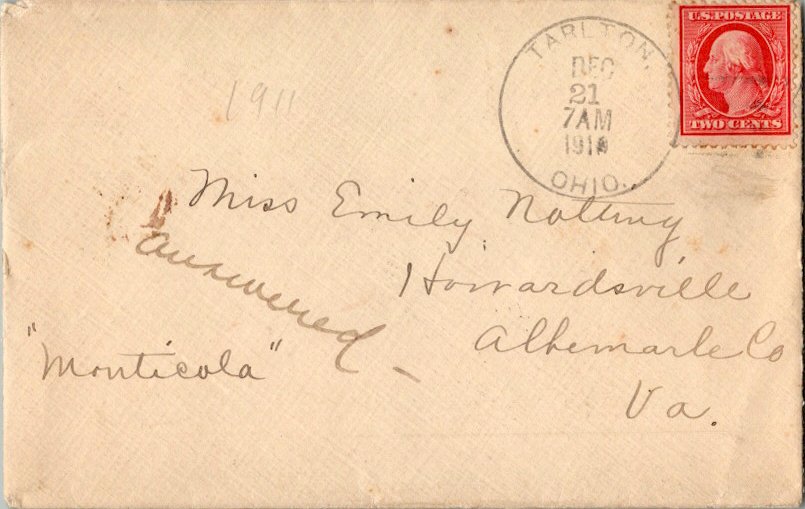 U.S. POSTAGE
TWO CENTS
TARLTON,
DEC
21
7AM
OHIO.
1911
Miss Emily Nolting
Howardsville
Albemarle Co
Va.
answered
"Monticola"